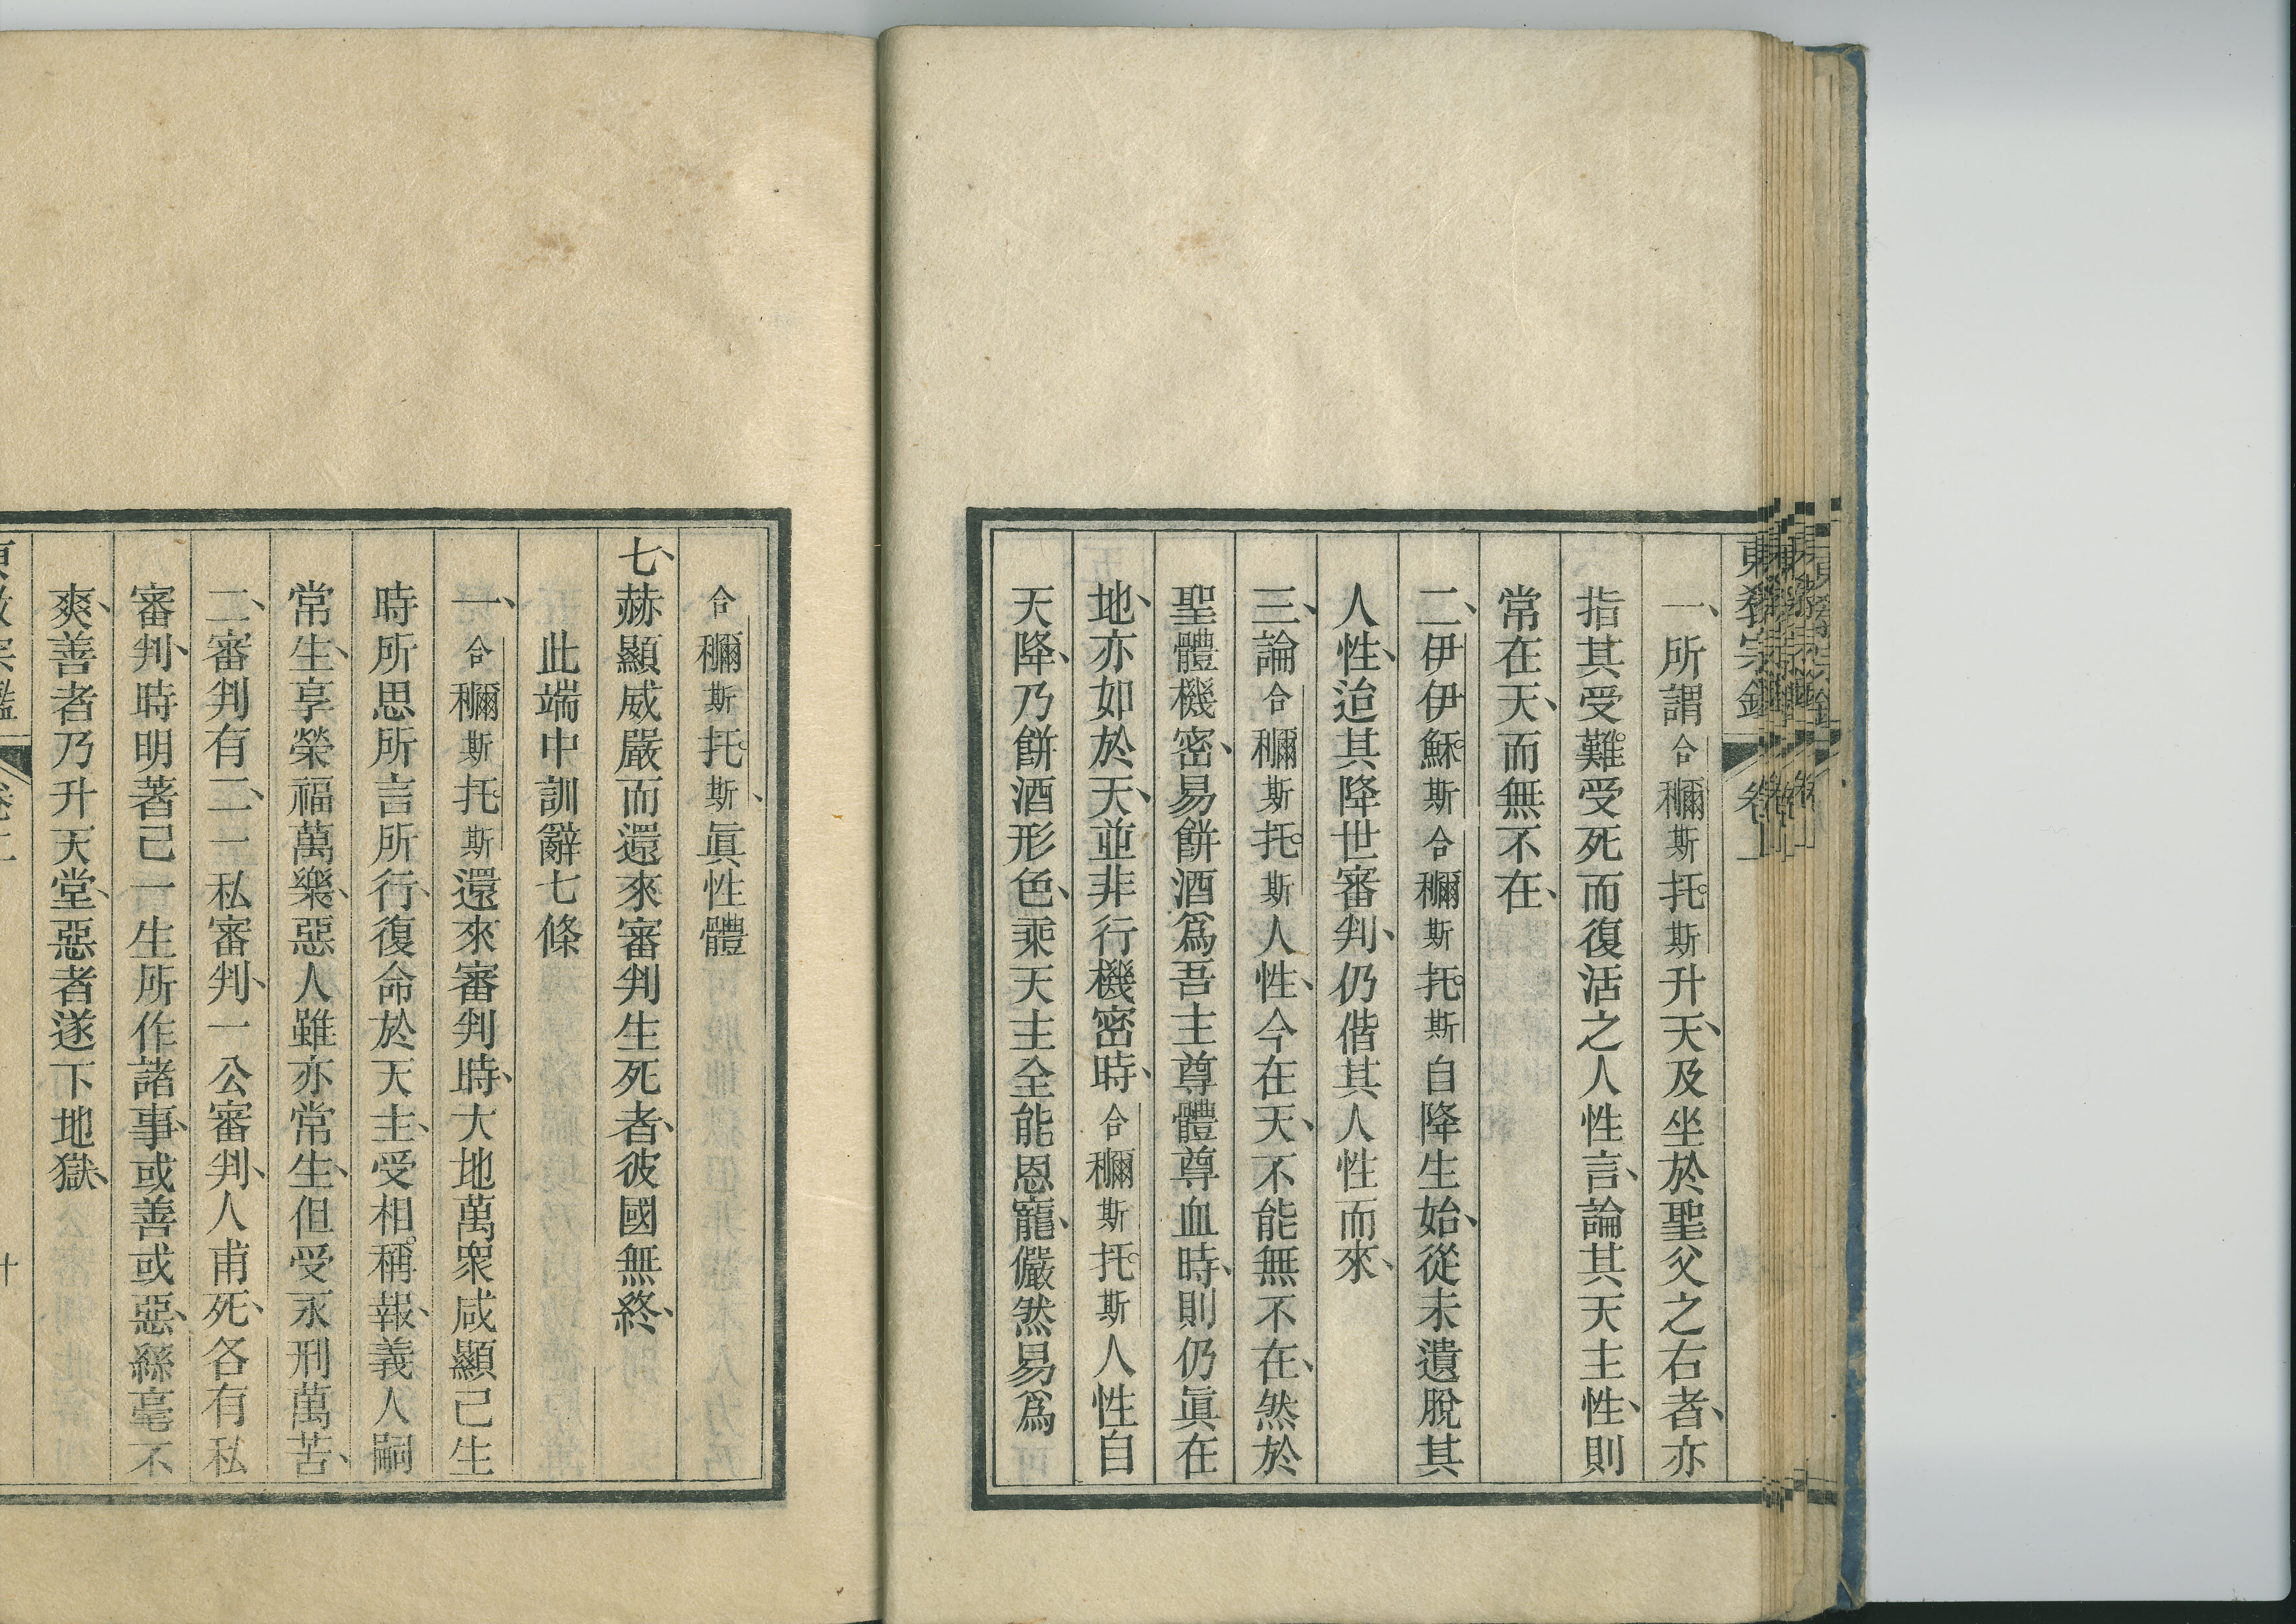 東教宗鑑 卷二
一、所謂合穪斯托斯升天、及坐於聖父之右者、亦
指其受難。受死而復活之人性言、論其天主性、則
常在天、而無不在、
二、伊伊穌斯合穪斯托斯自降生始、從未遺脫其
人性、迨其降世審判、仍偕其人性而來、
三、論合穪斯托斯人性、今在天、不能無不在、然於
聖體機密、易餅酒爲吾主尊體尊血時、則仍眞在
地、亦如於天、並非行機密時、合穪斯托斯人性自
天降、乃餅酒形色、乘天主全能恩寵、儼然易爲
合穪斯托斯、眞性體
七、赫顯威嚴而還來審判生死者、彼國無終、
此端中訓辭七條
一、合穪斯托斯還來審判時、大地萬衆咸顯己生
時所思所言所行、復命於天主、受相稱。報、義人嗣
常生、享榮福萬樂、惡人雖亦常生、但受永刑萬苦、
二、審判有二、一私審判、一公審判、人甫死、各有私
審判、時明著己一生所作諸事、或善或惡、絲毫不
爽、善者乃升天堂、惡者遂下地獄、
東教宗鑑 卷二 十